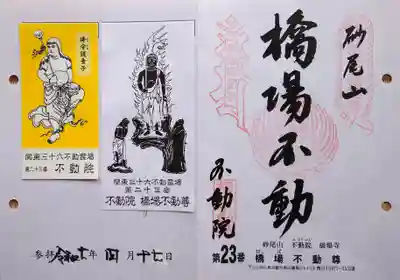 砂尾山
橋場不動
不動院
砂尾山 不動院 橋場寺
第23番 橋場不動尊
関東三十六不動霊場
第二十三番 不動院
関東三十六不動霊場
第二十三番
不動院 橋場不動尊
参拝 令和七年 四月十七日